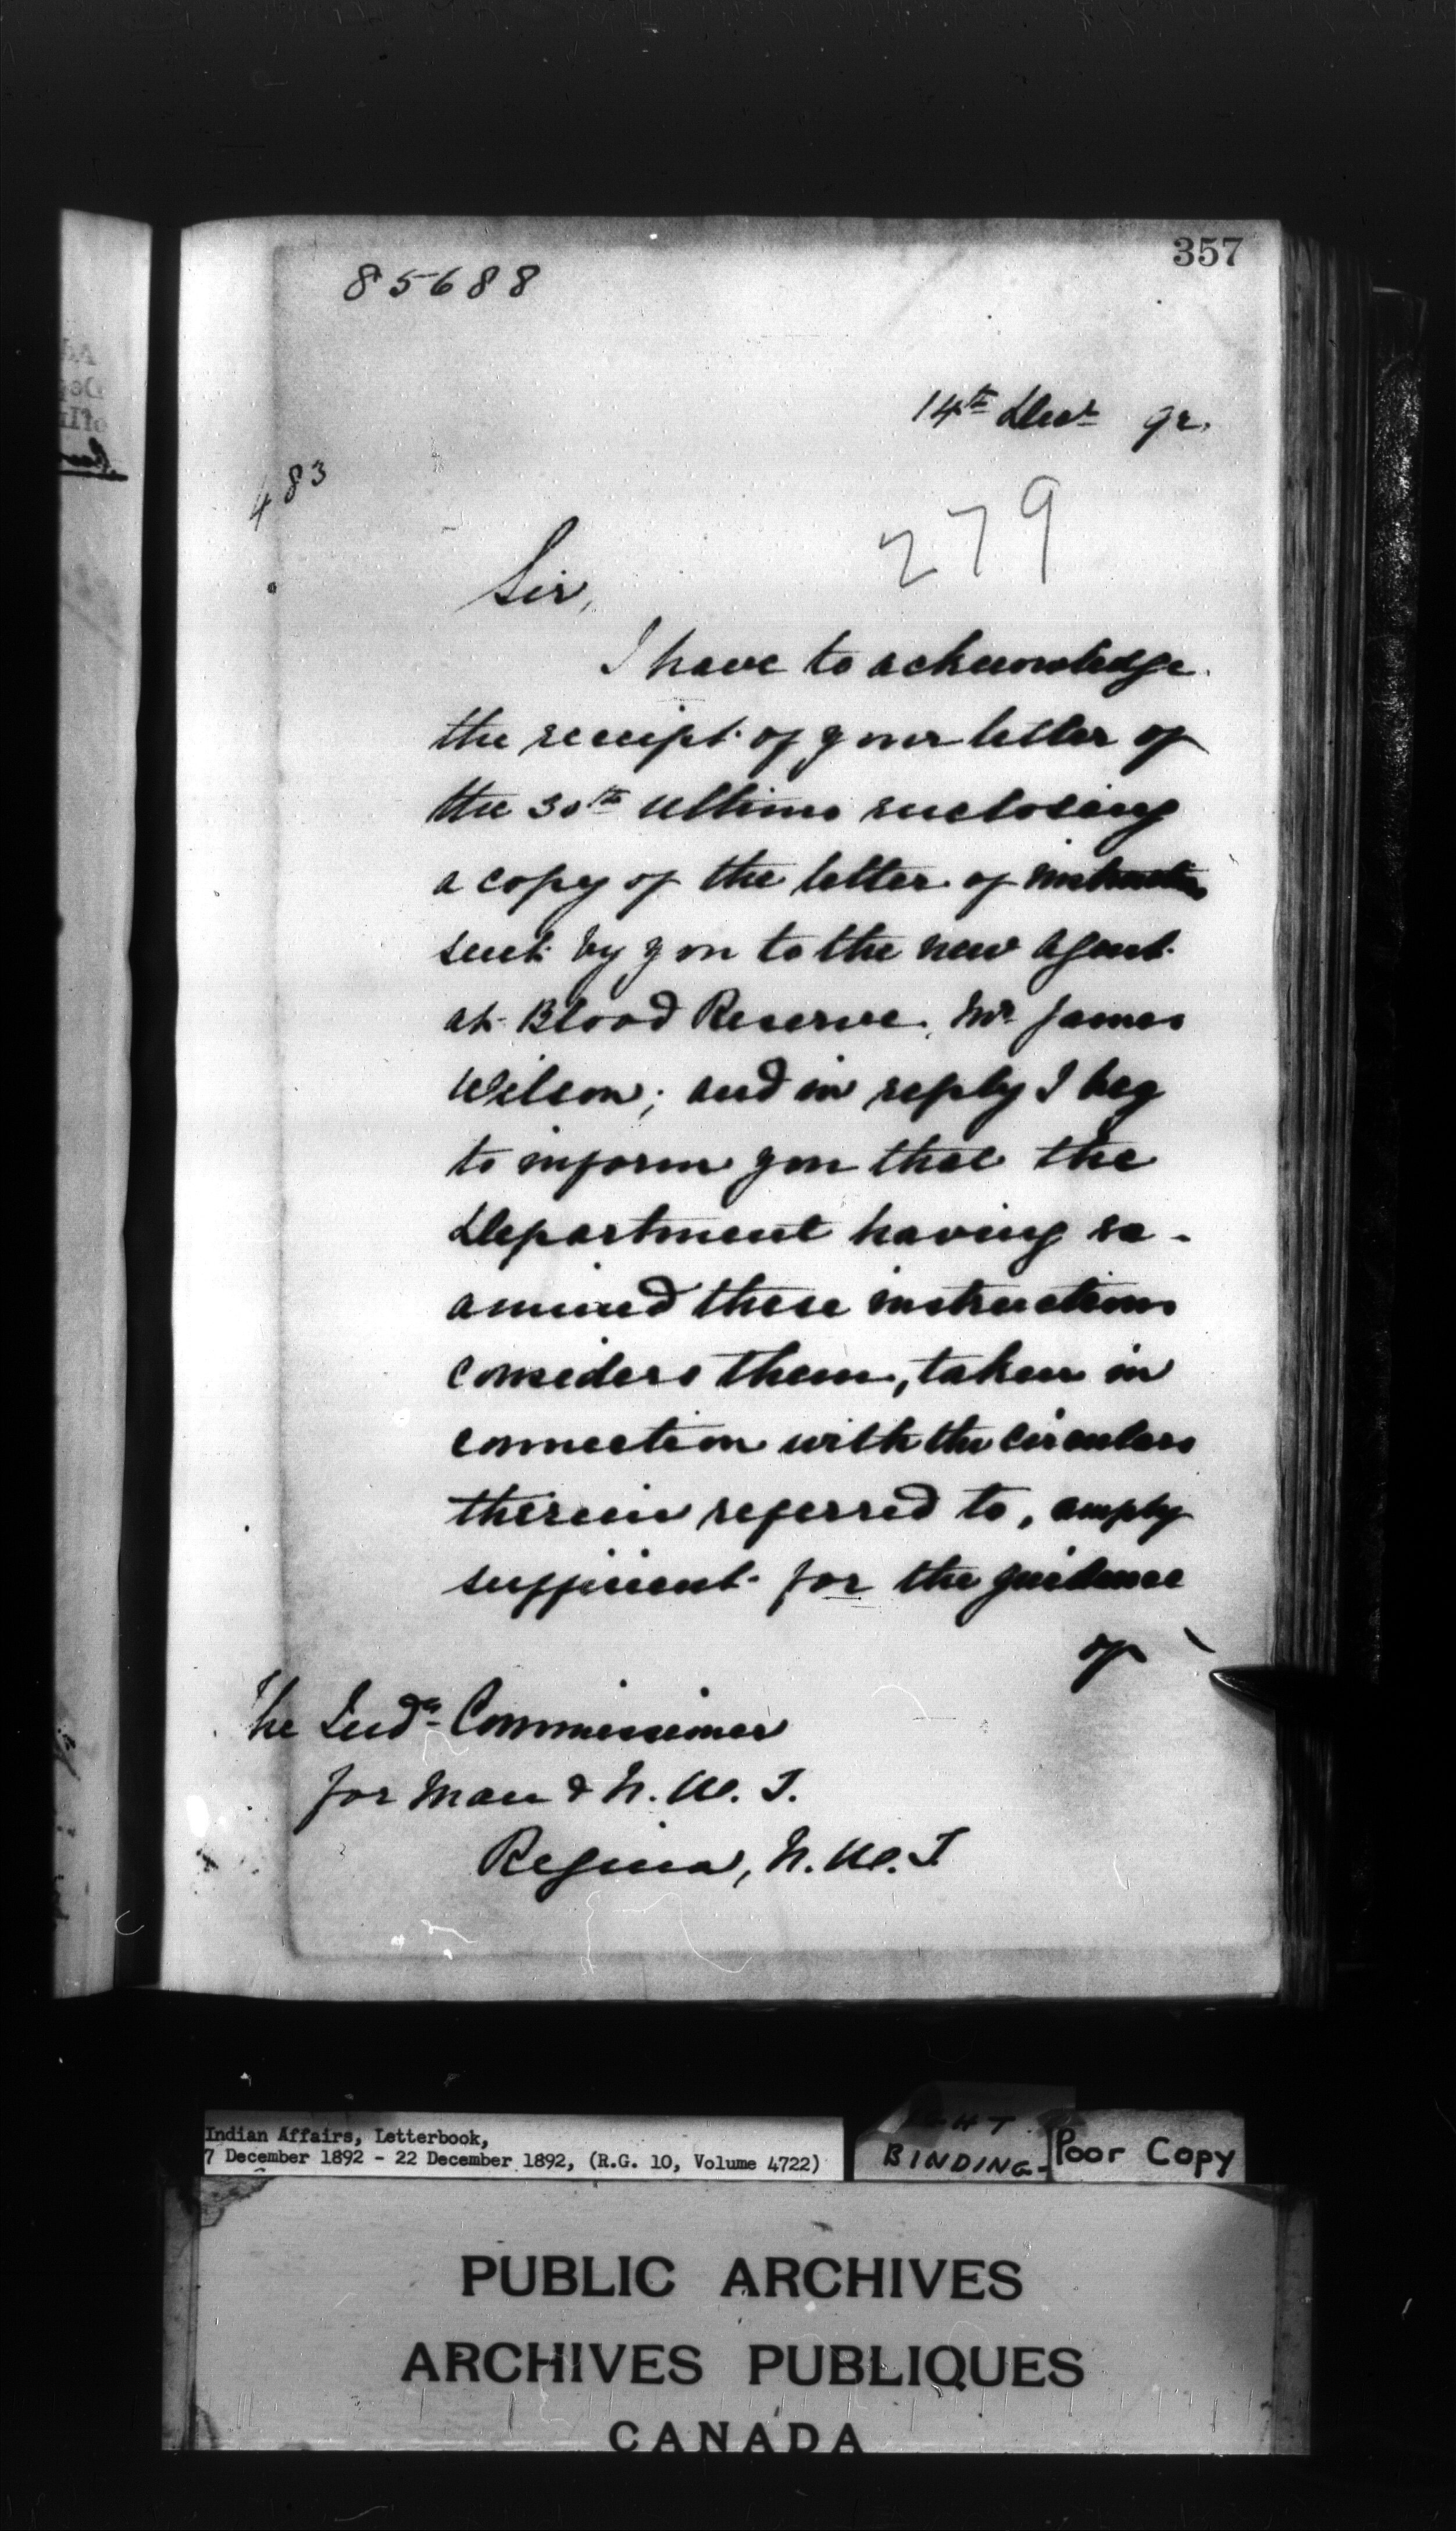 357
85688
14th Decr 92.
483
279
Sir,
I have to acknowledge
the receipt of your letter of
the 30th Ultimo enclosing
a copy of the letter of instruction
sent by you to the new Agent
at Blood Reserve, Mr James
Wilson; and in reply I beg
to inform you that the
Department having ex-
amined these instructions
considers them, taken in
connection with the Circulars
therein referred to, amply
sufficient for the guidance
of
The Indn Commissioner
for Man & N. W. T.
Regina, N. W. T.
Indian Affairs, Letterbook,
7 December 1892 - 22 December 1892, (R.G. 10, Volume 4722)
BINDING-
Poor Copy
PUBLIC ARCHIVES
ARCHIVES PUBLIQUES
CANADA